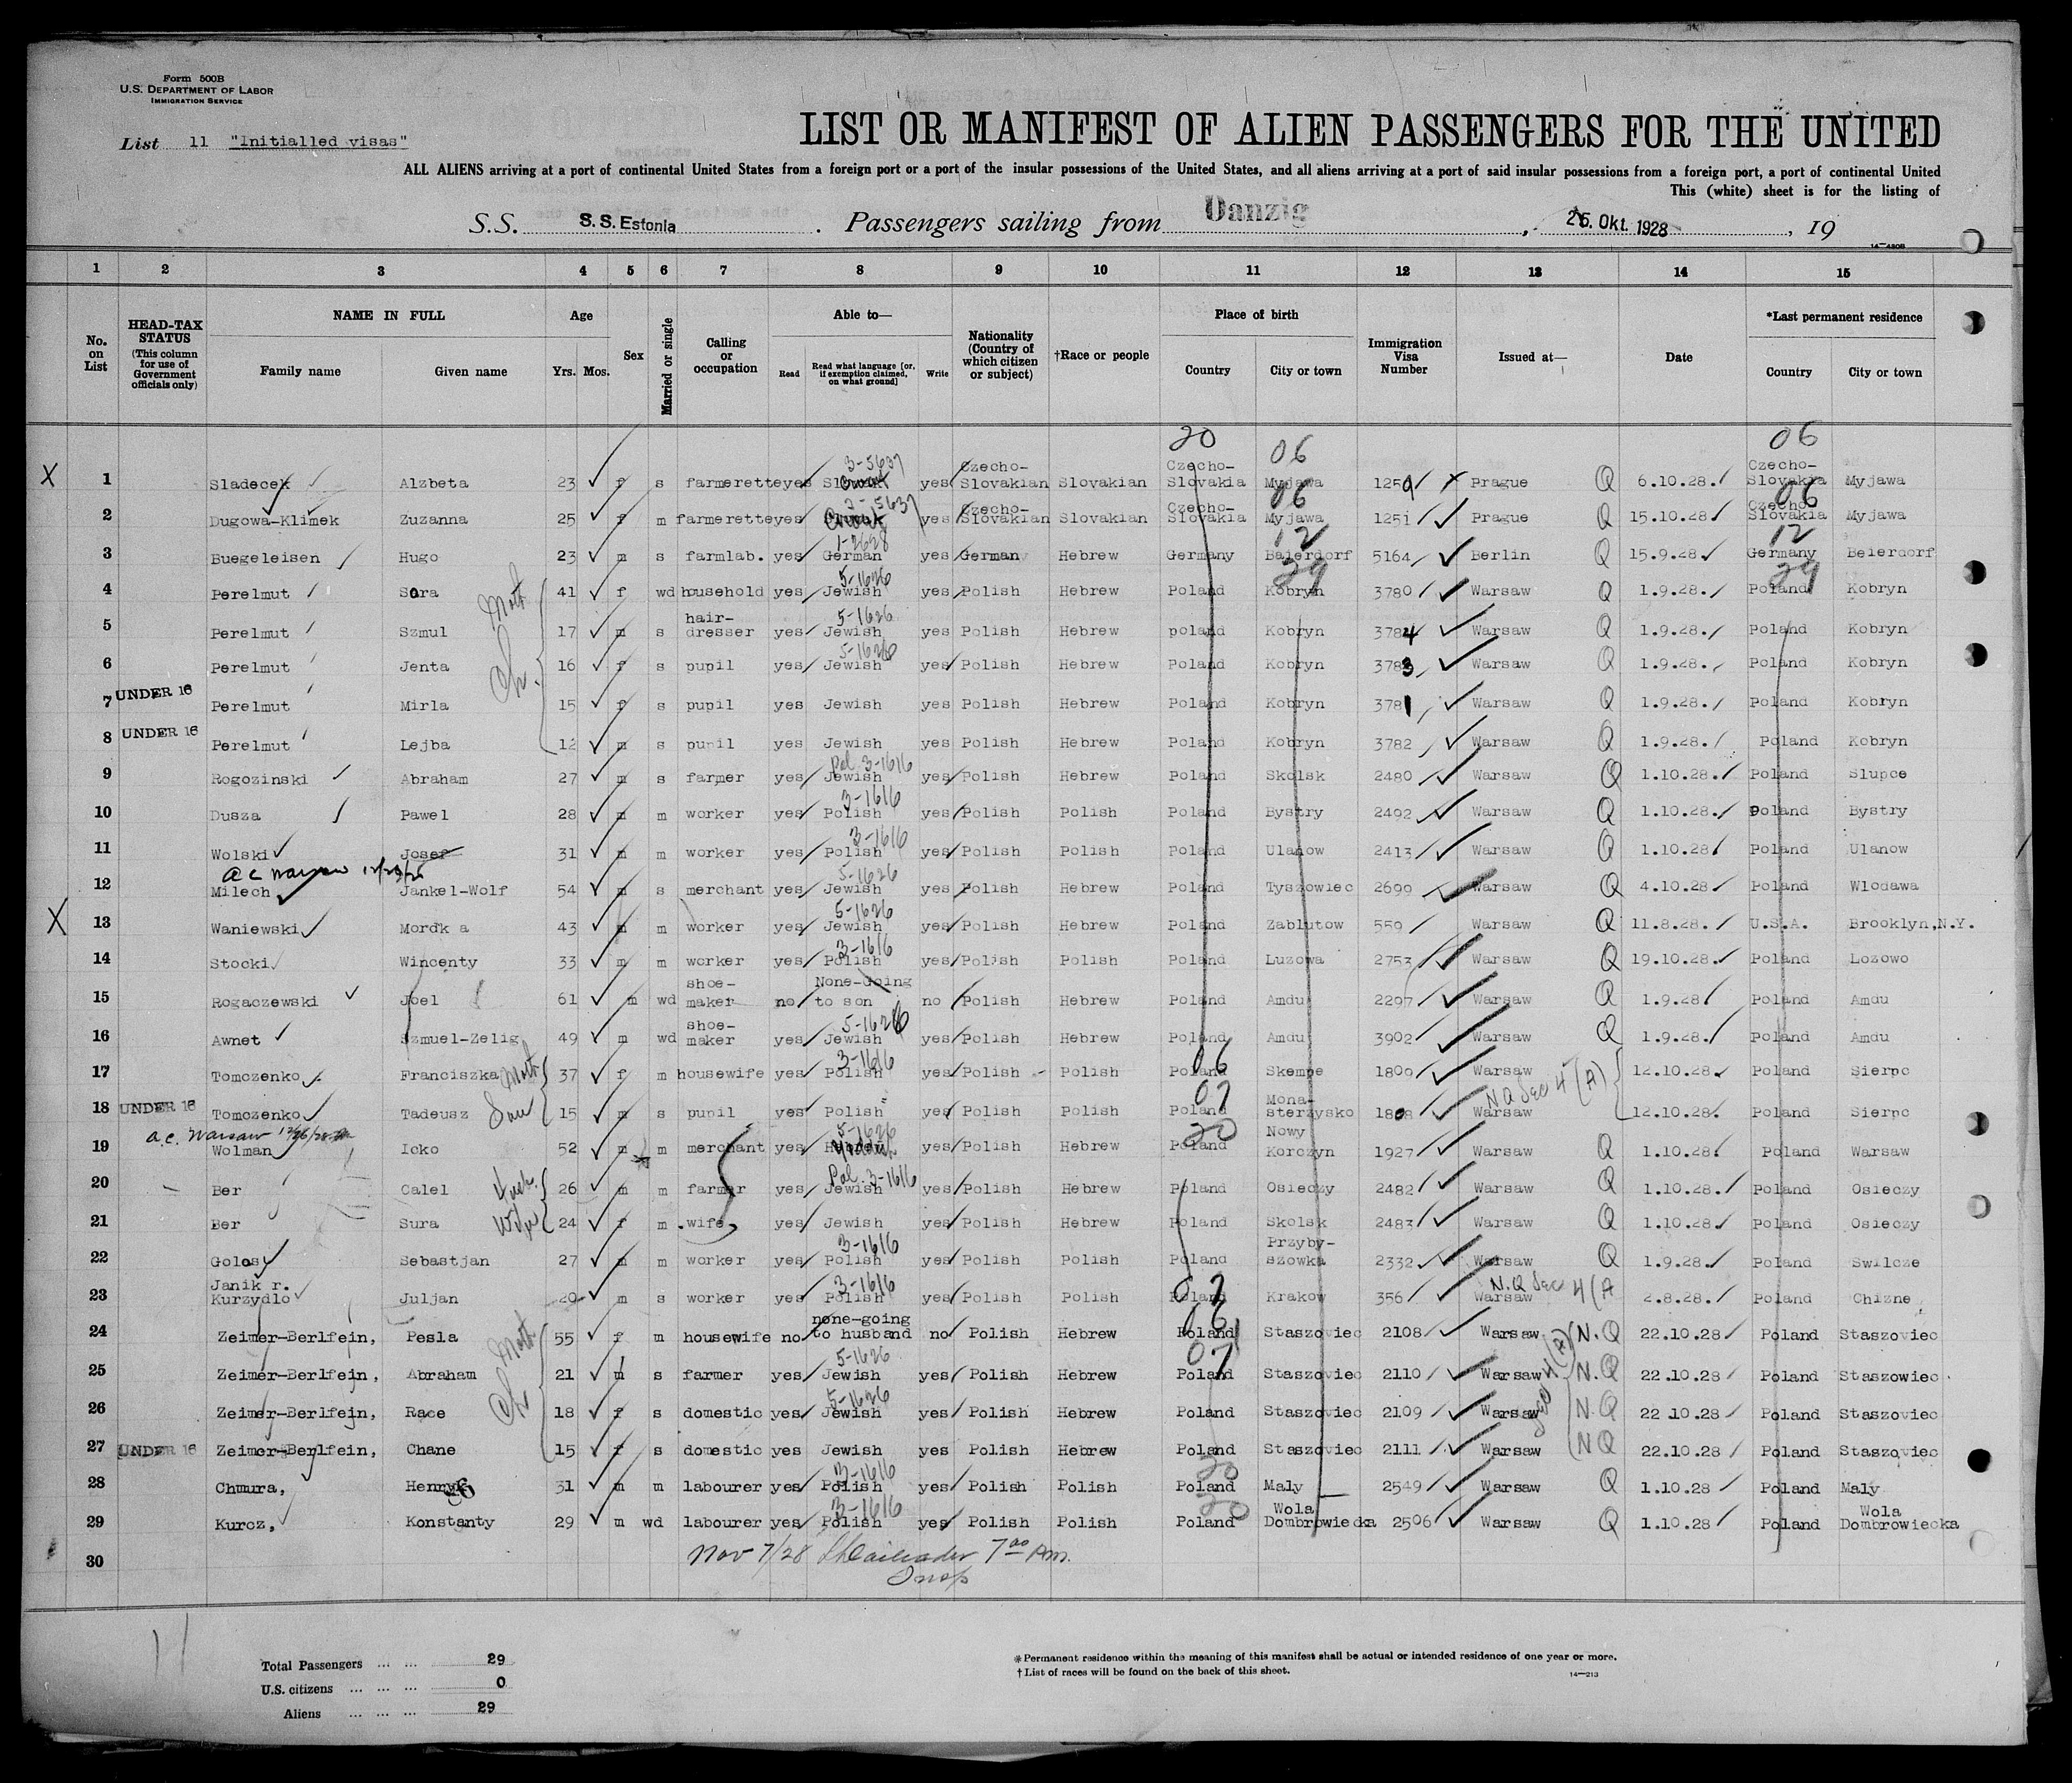 Form 500B
U.S. DEPARTMENT OF LABOR
IMMIGRATION SERVICE
List 11 "Initialled visas"
LIST OR MANIFEST OF ALIEN PASSENGERS FOR THE UNITED
ALL ALIENS arriving at a port of continental United States from a foreign port or a port of the insular possessions of the United States, and all aliens arriving at a port of said insular possessions from a foreign port, a port of continental United
This (white) sheet is for the listing of
S.S. S.S. Estonia . Passengers sailing from Danzig , 25. Okt. 1928 , 19
14—480B
1 2 3 4 5 6 7 8 9 10 11 12 13 14 15
No. on List
HEAD-TAX STATUS (This column for use of Government officials only)
NAME IN FULL Family name Given name
Age Yrs. Mos.
Sex
Married or single
Calling or occupation
Able to— Read Read what language [or, if exemption claimed, on what ground] Write
Nationality (Country of which citizen or subject)
†Race or people
Place of birth Country City or town
Immigration Visa Number
Issued at—
Date
*Last permanent residence Country City or town
20 06 06
X 1 Sladecek Alzbeta 23 f s farmerette yes 3-5637 yes Czecho-Slovakian Slovakian Czecho-Slovakia Myjawa 1250 Prague Q 6.10.28. Czecho-Slovakia Myjawa
2 Dugowa-Klimek Zuzanna 25 f m farmerette yes 3-5637 yes Czecho-Slovakian Slovakian Czecho-Slovakia Myjawa 06 1251 Prague Q 15.10.28 Czecho-Slovakia 06 Myjawa
3 Buegeleisen Hugo 23 m s farmlab. yes German 1-2628 yes German Hebrew Germany Baierdorf 12 5164 Berlin Q 15.9.28. Germany 12 Beierdorf
4 Perelmut Sara Moth 41 f wd household yes Jewish 5-1626 yes Polish Hebrew Poland Kobryn 29 3780 Warsaw Q 1.9.28. Poland 29 Kobryn
5 Perelmut Szmul 17 m s hair-dresser yes Jewish 5-1626 yes Polish Hebrew poland Kobryn 3784 Warsaw Q 1.9.28. Poland Kobryn
6 Perelmut Jenta Ch. 16 f s pupil yes Jewish 5-1626 yes Polish Hebrew Poland Kobryn 3783 Warsaw Q 1.9.28. Poland Kobryn
7 UNDER 16 Perelmut Mirla 15 f s pupil yes Jewish yes Polish Hebrew Poland Kobryn 3781 Warsaw Q 1.9.28. Poland Kobryn
8 UNDER 16 Perelmut Lejba 12 m s pupil yes Jewish yes Polish Hebrew Poland Kobryn 3782 Warsaw Q 1.9.28. Poland Kobryn
9 Rogozinski Abraham 27 m s farmer yes Jewish Pol. 3-1616 yes Polish Hebrew Poland Skolsk 2480 Warsaw Q 1.10.28. Poland Slupce
10 Dusza Pawel 28 m m worker yes Polish 3-1616 yes Polish Polish Poland Bystry 2492 Warsaw Q 1.10.28. Poland Bystry
11 Wolski Josef 31 m m worker yes Polish 3-1616 yes Polish Polish Poland Ulanow 2413 Warsaw Q 1.10.28. Poland Ulanow
a c Warsaw
12 Milech Jankel-Wolf 54 m s merchant yes Jewish 5-1626 yes Polish Hebrew Poland Tyszowiec 2699 Warsaw Q 4.10.28 Poland Wlodawa
X 13 Waniewski Mordk a 43 m m worker yes Jewish 5-1626 yes Polish Hebrew Poland Zablutow 559 Warsaw Q 11.8.28. U.S.A. Brooklyn,N.Y.
14 Stocki Wincenty 33 m m worker yes Polish 3-1616 yes Polish Polish Poland Luzowa 2753 Warsaw Q 19.10.28. Poland Lozowo
15 Rogaczewski Joel 61 m wd shoe-maker no None-Going to son no Polish Hebrew Poland Amdu 2297 Warsaw Q 1.9.28 Poland Amdu
16 Awnet Szmuel-Zelig 49 m wd shoe-maker yes Jewish 5-1626 yes Polish Hebrew Poland Amdu 3902 Warsaw Q 1.9.28. Poland Amdu
17 Tomczenko Franciszka Moth 37 f m housewife yes Polish 3-1616 yes Polish Polish Poland 06 Skempe 1809 Warsaw NQ Sec 4 (A) 12.10.28. Poland Sierpc
18 UNDER 16 Tomczenko Tadeusz Son 15 m s pupil yes Polish yes Polish Polish Poland 07 Mona-sterzysko 1808 Warsaw 12.10.28. Poland Sierpc
a.c. Warsaw
19 Wolman Icko 52 m m merchant yes 5-1626 yes Polish Hebrew Poland 20 Nowy Korczyn 1927 Warsaw Q 1.10.28. Poland Warsaw
20 Ber Calel 26 m m farmer yes Jewish Pol. 3-1616 yes Polish Hebrew Poland Osieczy 2482 Warsaw Q 1.10.28. Poland Osieczy
21 Ber Sura Wife 24 f m wife yes Jewish yes Polish Hebrew Poland Skolsk 2483 Warsaw Q 1.10.28 Poland Osieczy
22 Golos Sebastjan 27 m m worker yes Polish 3-1616 yes Polish Polish Poland Przyby-szowka 2332 Warsaw Q 1.9.28. Poland Swilcze
23 Janik r. Kurzydlo Juljan 20 m s worker yes Polish 3-1616 yes Polish Polish Poland 07 Krakow 356 Warsaw N.Q Sec 4(A 2.8.28. Poland Chizne
24 Zeimer-Berlfein, Pesla Moth 55 f m housewife no none-going to husband no Polish Hebrew Poland 06 Staszoviec 2108 Warsaw N.Q 22.10.28 Poland Staszoviec
25 Zeimer-Berlfein, Abraham 21 m s farmer yes Jewish 5-1626 yes Polish Hebrew Poland 07 Staszoviec 2110 Warsaw Sec 4 (A) N.Q 22.10.28 Poland Staszowiec
26 Zeimer-Berlfein, Race Ch 18 f s domestic yes Jewish 5-1626 yes Polish Hebrew Poland Staszoviec 2109 Warsaw N.Q 22 10.28 Poland Staszoviec
27 UNDER 16 Zeimer-Berlfein, Chane 15 f s domestic yes Jewish yes Polish Hebrew Poland Staszoviec 2111 Warsaw NQ 22.10.28 Poland Staszoviec
28 Chmura, Henryk 31 m m labourer yes Polish 3-1616 yes Polish Polish Poland 20 Maly 2549 Warsaw Q 1.10.28 Poland Maly
29 Kurcz, Konstanty 29 m wd labourer yes Polish 3-1616 yes Polish Polish Poland 20 Wola Dombrowiecka 2506 Warsaw Q 1.10.28 Poland Wola Dombrowiecka
30 Nov 7/28 7 00 P.m.
Insp
11
Total Passengers ... ... 29
U.S. citizens ... ... ... 0
Aliens ... ... ... 29
*Permanent residence within the meaning of this manifest shall be actual or intended residence of one year or more.
†List of races will be found on the back of this sheet.
14—213